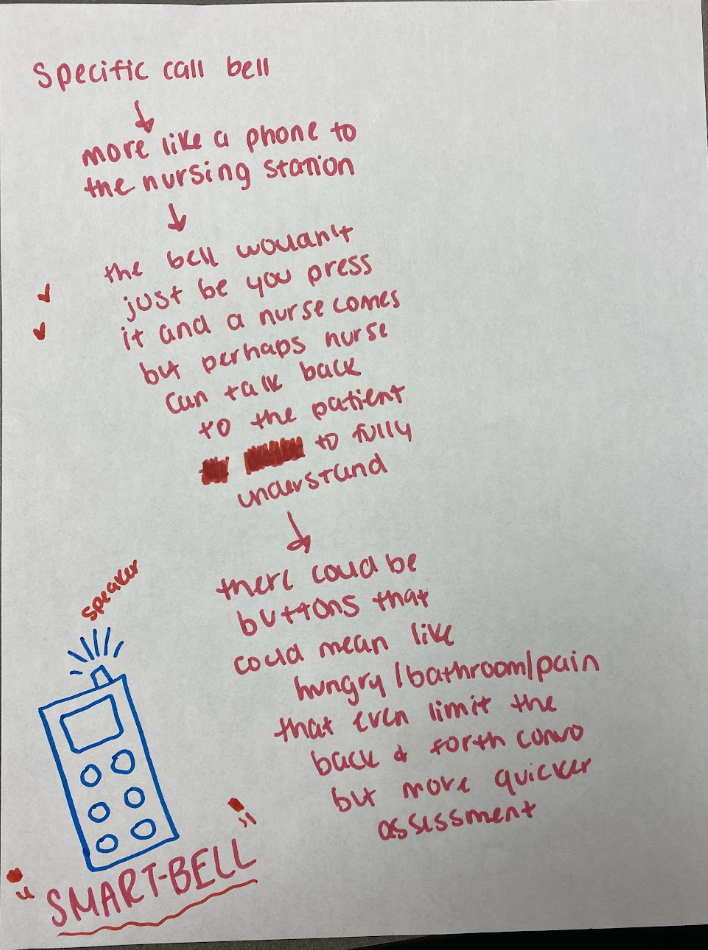 Specific call bell
more like a phone to
the nursing station
the bell wouldn't
just be you press
it and a nurse comes
but perhaps nurse
can talk back
to the patient
to fully
understand
there could be
buttons that
could mean like
hungry/bathroom/pain
that even limit the
back & forth convo
but more quicker
assessment
speaker
"SMART-BELL"